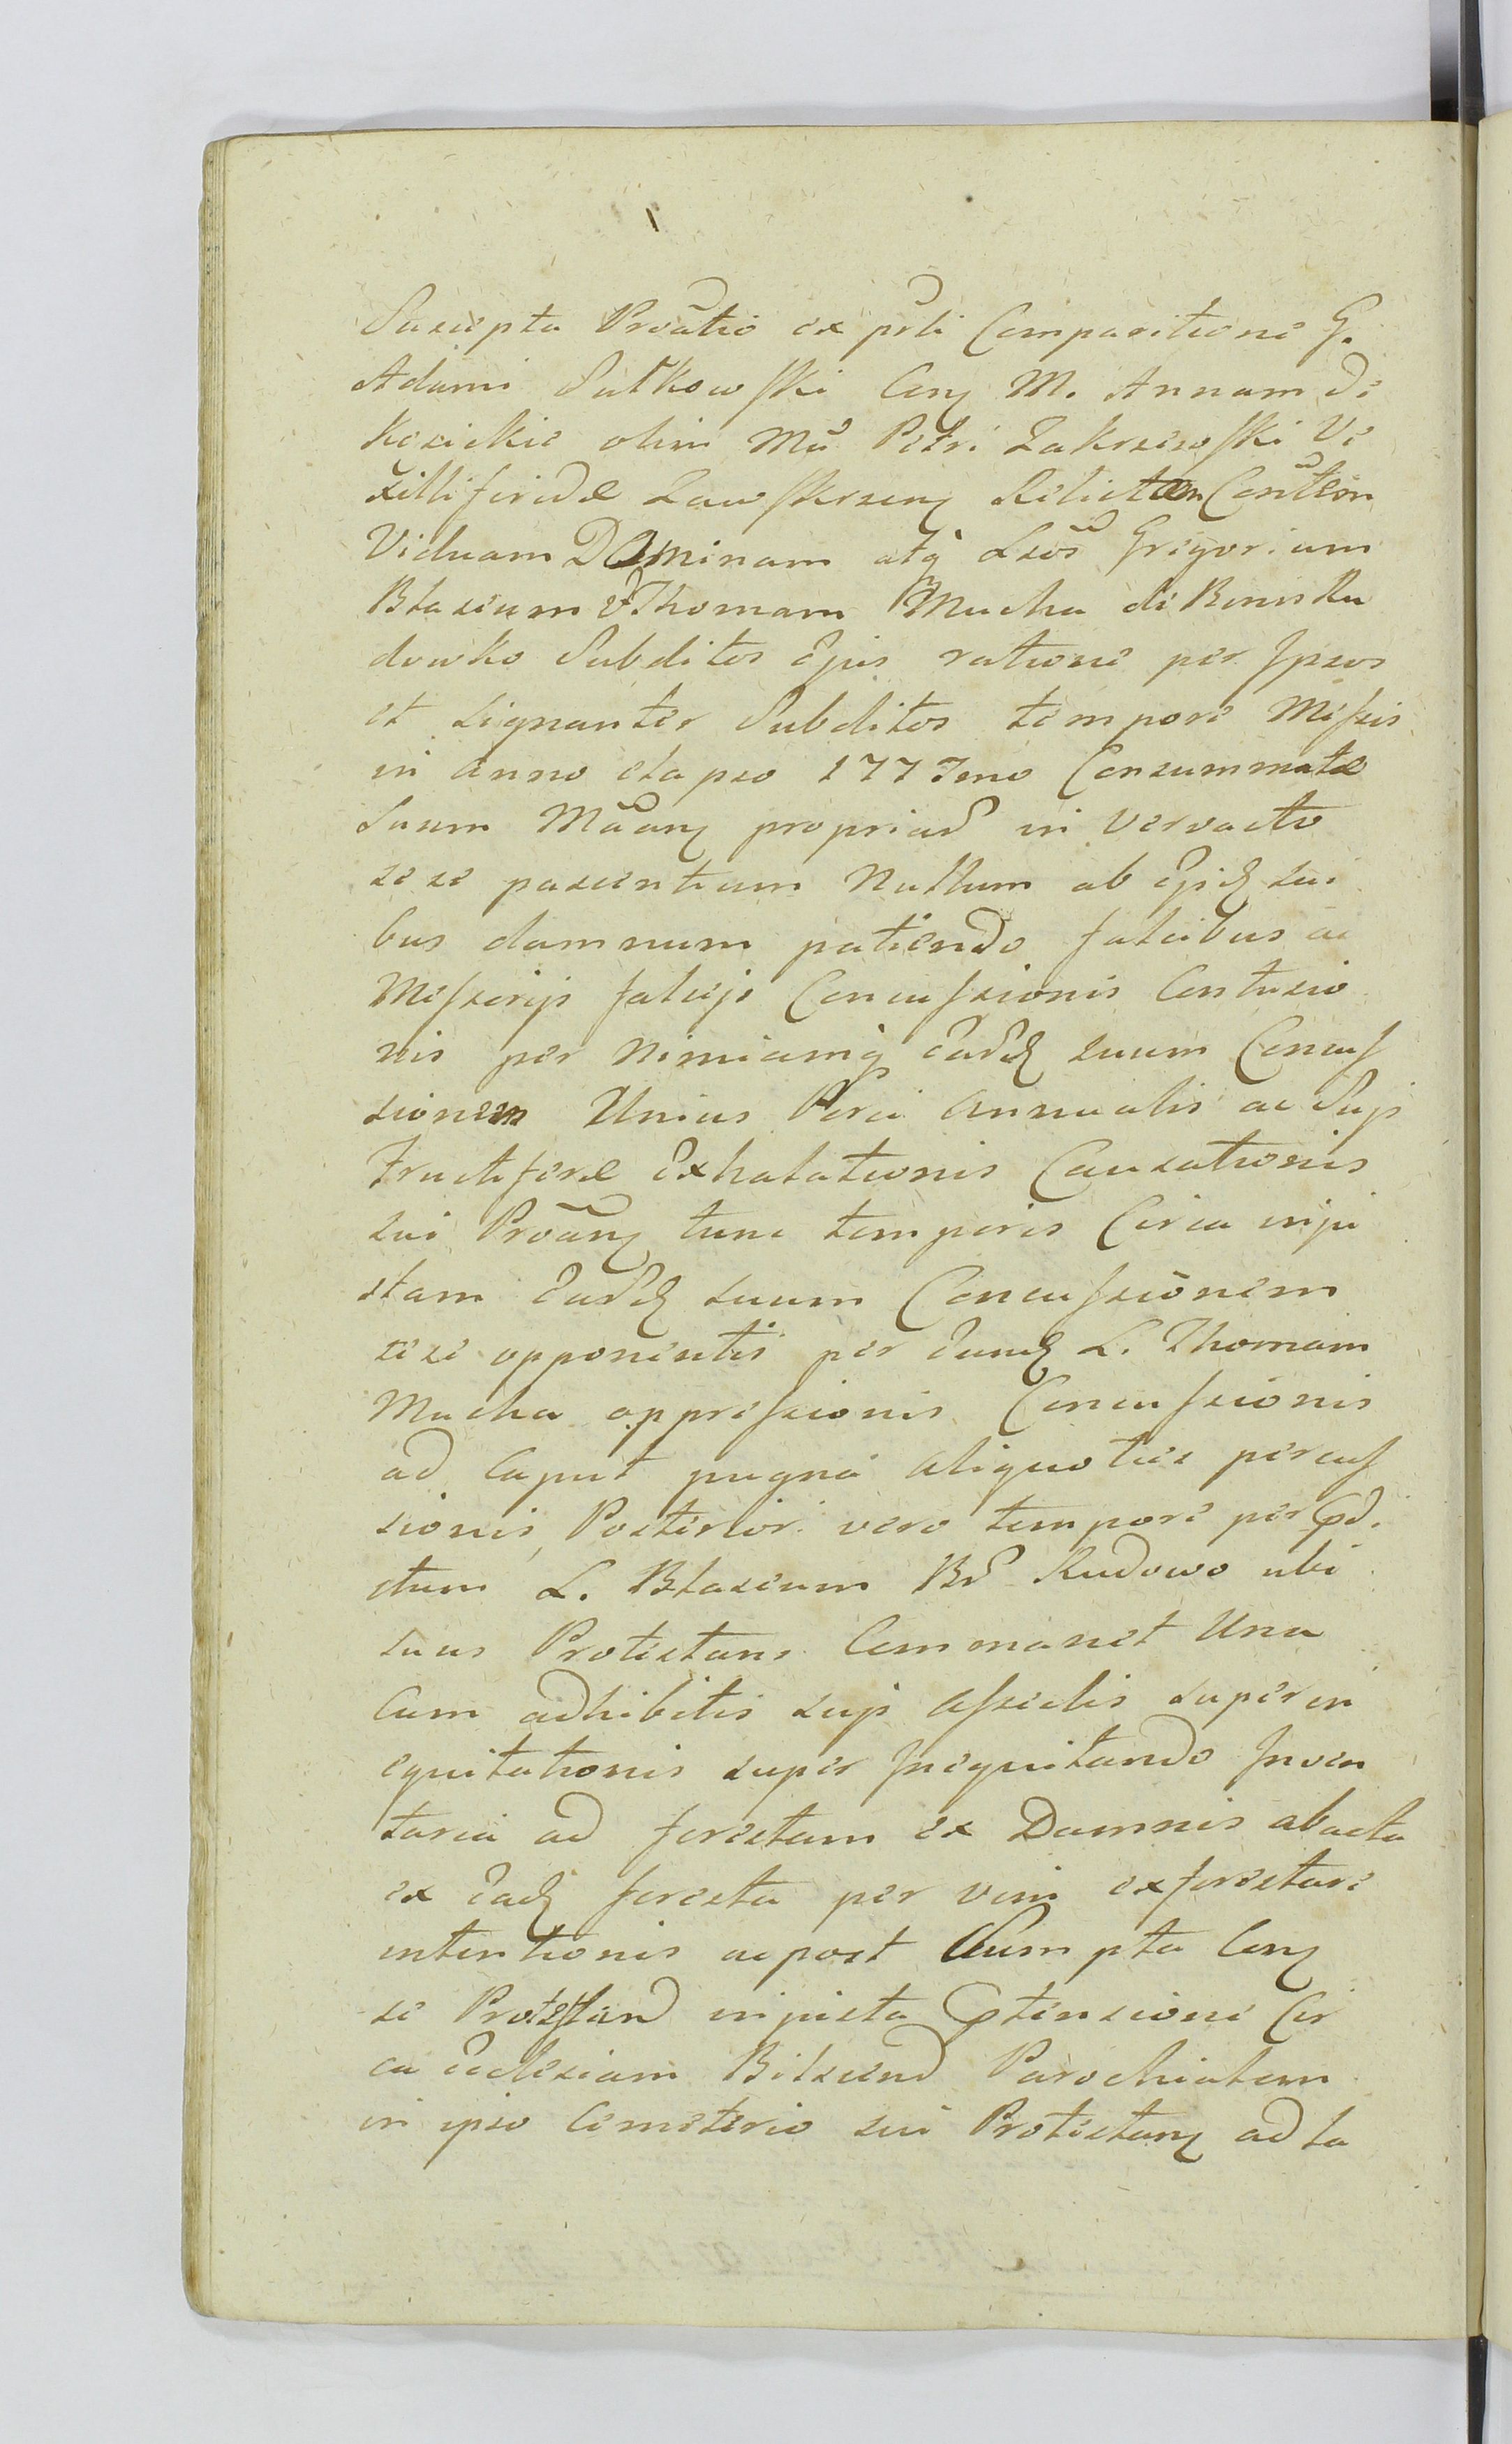 Suscepta Proãtio ex pñti Comparitione G.
Adami Sutkowski Cong M. Annam de
Kozickie olim Mũ Petri Zakrzewski Ve
xilliferidæ Zawskrzeng Relictam Contem
Viduam Dominam atq Lsos Gregorium
Blasium & Thomam Mucha de Bonis Ru
dowko Subditos Ejus ratione per Ipsos
et signanter Subditos tempore Messis
in anno elapso 1777mo Consummatæ
Suum propriad in Vervacto
sese pascentium Nullum ab sui
bus damnum patiendo falcibus ac
Messorijs falcijs Concussionis Contusio
nis per Nimiamq suum Concus
sionem Unius Porci Annualis ac Sujs
Fructiferæ Exhalationis Causationis
sui Proãng tunc temporis Circa inju
stam suum Concussionem
sese opponentis per L. Thomam
Mucha oppressionis Concussionis
ad Caput pugna aliquoties percus
sionis, Posteriori vero tempore per
ctum L. Blasium Bd Rudowo ubi
suus Protestans Commanet Una
Cum adhibitis sujs asseclis superin
equitationis super Inequitando Inven
taria ad forestam ex Damnis abacta
ex foresta per vim exforestare
intentionis ac post Sumpta Cong
se Protestand injusta Ptensione Cir
ca Ecclesiam Bilscend Parochialem
in ipso Cemeterio sui Protestang ad la